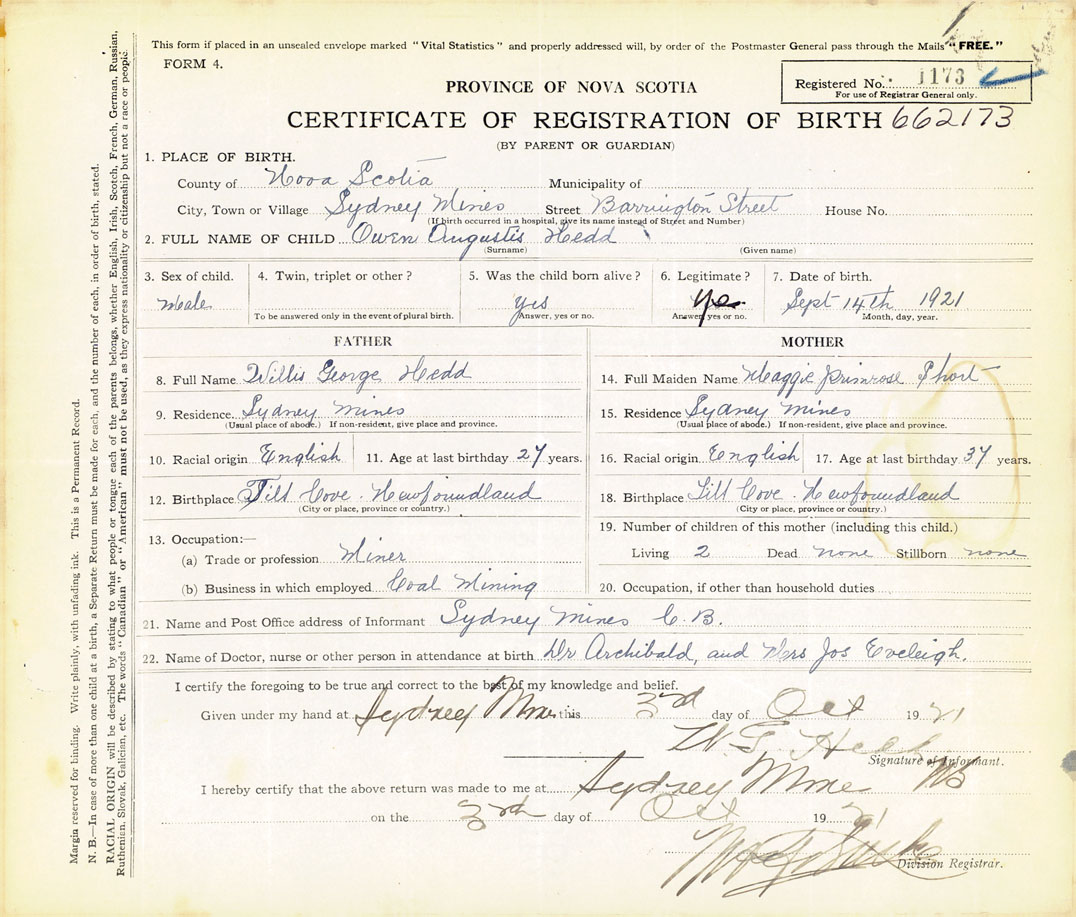 This form if placed in an unsealed envelope marked "Vital Statistics" and properly addressed will, by order of the Postmaster General pass through the Mails "FREE."
FORM 4.
Registered No. 1173
For use of Registrar General only.
PROVINCE OF NOVA SCOTIA
CERTIFICATE OF REGISTRATION OF BIRTH 662173
(BY PARENT OR GUARDIAN)
1. PLACE OF BIRTH.
County of Nova Scotia Municipality of
City, Town or Village Sydney Mines Street Barrington Street House No.
(If birth occurred in a hospital, give its name instead of Street and Number)
2. FULL NAME OF CHILD Owen Augustis Hedd
(Surname) (Given name)
3. Sex of child. 4. Twin, triplet or other? 5. Was the child born alive? 6. Legitimate? 7. Date of birth.
Male yes yes Sept 14th 1921
To be answered only in the event of plural birth. Answer, yes or no. Answer yes or no. Month, day, year.
FATHER
8. Full Name Willis George Hedd
9. Residence. Sydney Mines
(Usual place of abode.) If non-resident, give place and province.
10. Racial origin English 11. Age at last birthday 27 years.
12. Birthplace Tilt Cove. Newfoundland
(City or place, province or country.)
13. Occupation:—
(a) Trade or profession Miner
(b) Business in which employed Coal Mining
MOTHER
14. Full Maiden Name Maggie Primrose Short
15. Residence Sydney Mines
(Usual place of abode.) If non-resident, give place and province.
16. Racial origin English 17. Age at last birthday 37 years.
18. Birthplace Tilt Cove. Newfoundland
(City or place, province or country.)
19. Number of children of this mother (including this child.)
Living 2 Dead none Stillborn none
20. Occupation, if other than household duties
21. Name and Post Office address of Informant Sydney Mines C.B.
22. Name of Doctor, nurse or other person in attendance at birth Dr Archibald, and Mrs Jos Eveleigh.
I certify the foregoing to be true and correct to the best of my knowledge and belief.
Given under my hand at Sydney Mines this 3rd day of Oct 1921
W. G. Hedd
Signature of Informant.
I hereby certify that the above return was made to me at Sydney Mines
on the 3rd day of Oct 1921
Division Registrar.
Margin reserved for binding. Write plainly, with unfading ink. This is a Permanent Record.
N. B.—In case of more than one child at a birth, a Separate Return must be made for each, and the number of each, in order of birth, stated.
RACIAL ORIGIN will be described by stating to what people or tongue each of the parents belongs, whether English, Irish, Scotch, French, German, Russian,
Ruthenian, Slovak, Galician, etc. The words "Canadian" or "American" must not be used, as they express nationality or citizenship but not a race or people.